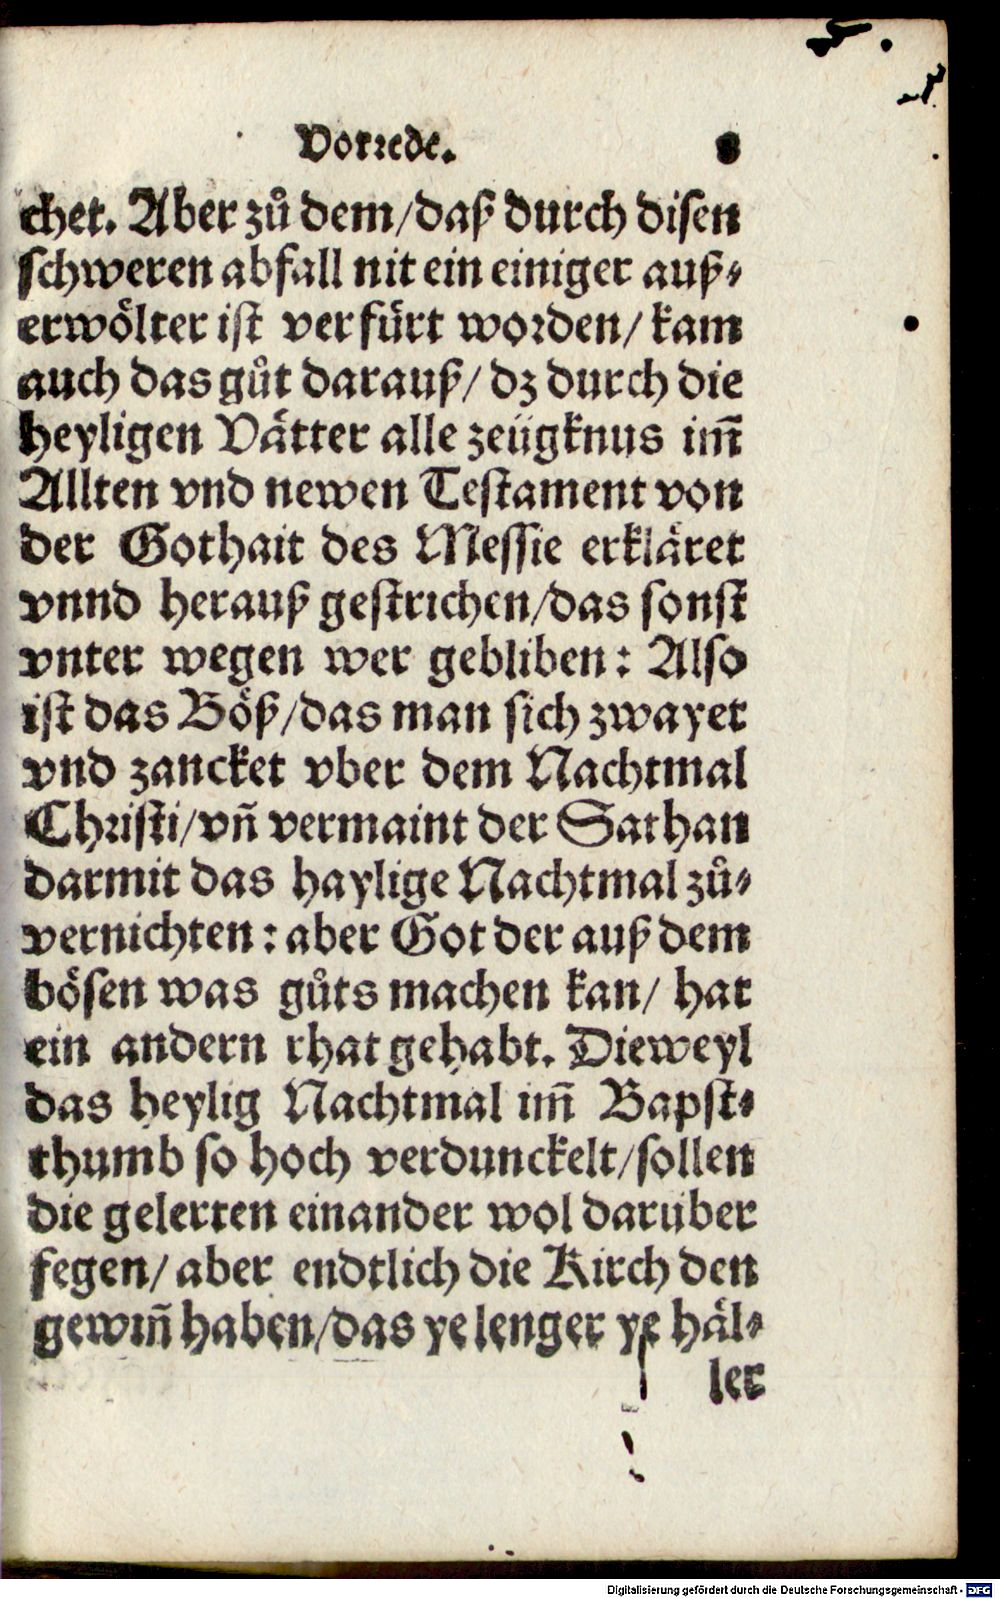 Vorrede. 8
chet. Aber zů dem/daß durch disen
schweren abfall nit ein einiger auß⸗
erwölter ist verfürt worden/ kam
auch das gůt darauß/ dz durch die
heyligen Vätter alle zeügknus im̃
Allten vnd newen Testament von
der Gothait des Messie erkläret
vnnd herauß gestrichen/das sonst
vnter wegen wer gebliben: Also
ist das Böß/das man sich zwayet
vnd zancket vber dem Nachtmal
Christi/vñ vermaint der Sathan
darmit das haylige Nachtmal zů⸗
vernichten: aber Got der auß dem
bösen was gůts machen kan/ hat
ein andern rhat gehabt. Dieweyl
das heylig Nachtmal im̃ Bapst⸗
thumb so hoch verdunckelt/sollen
die gelerten einander wol daruber
fegen/ aber endtlich die Kirch den
gewiñ haben/das ye lenger ye häl⸗
ler
Digitalisierung gefördert durch die Deutsche Forschungsgemeinschaft - DFG